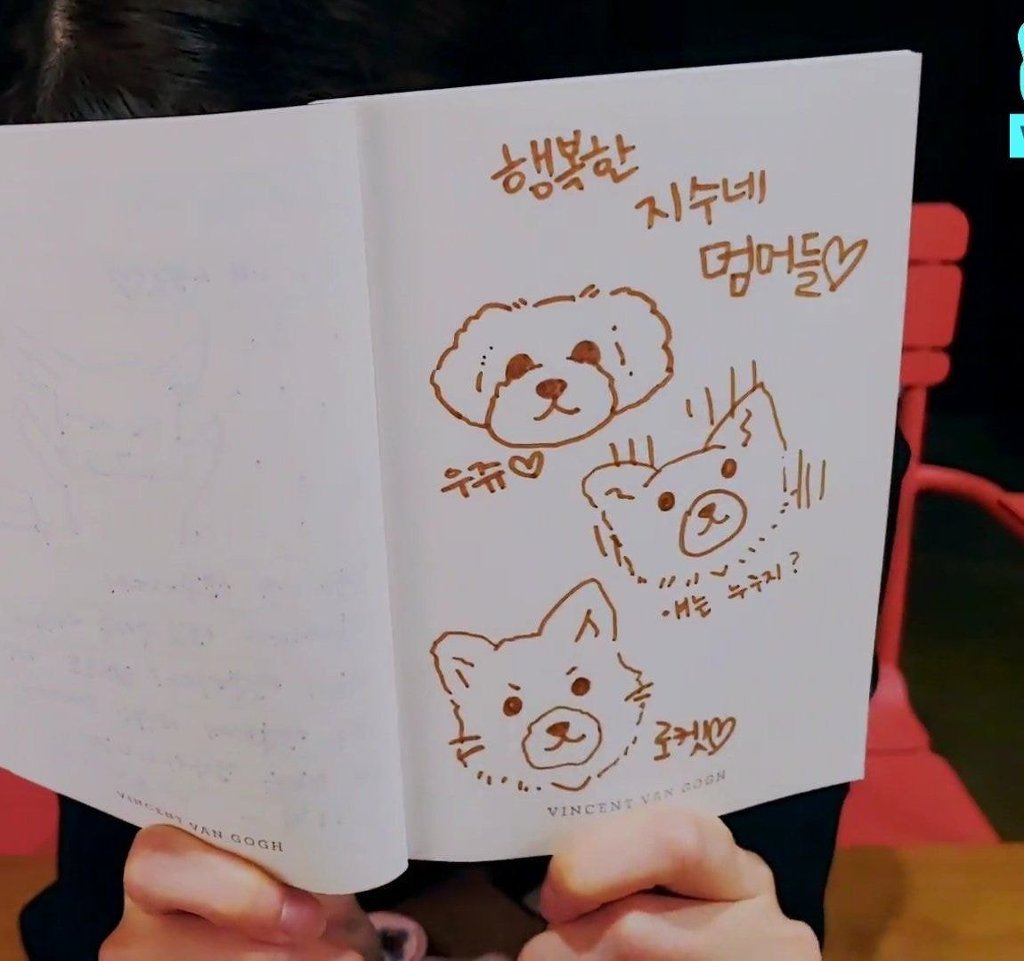 행복한
지수네
멈머들♡
우쥬♡
·얘는 누구지?
로켓♡
VINCENT VAN GOGH
VINCENT VAN GOGH
V